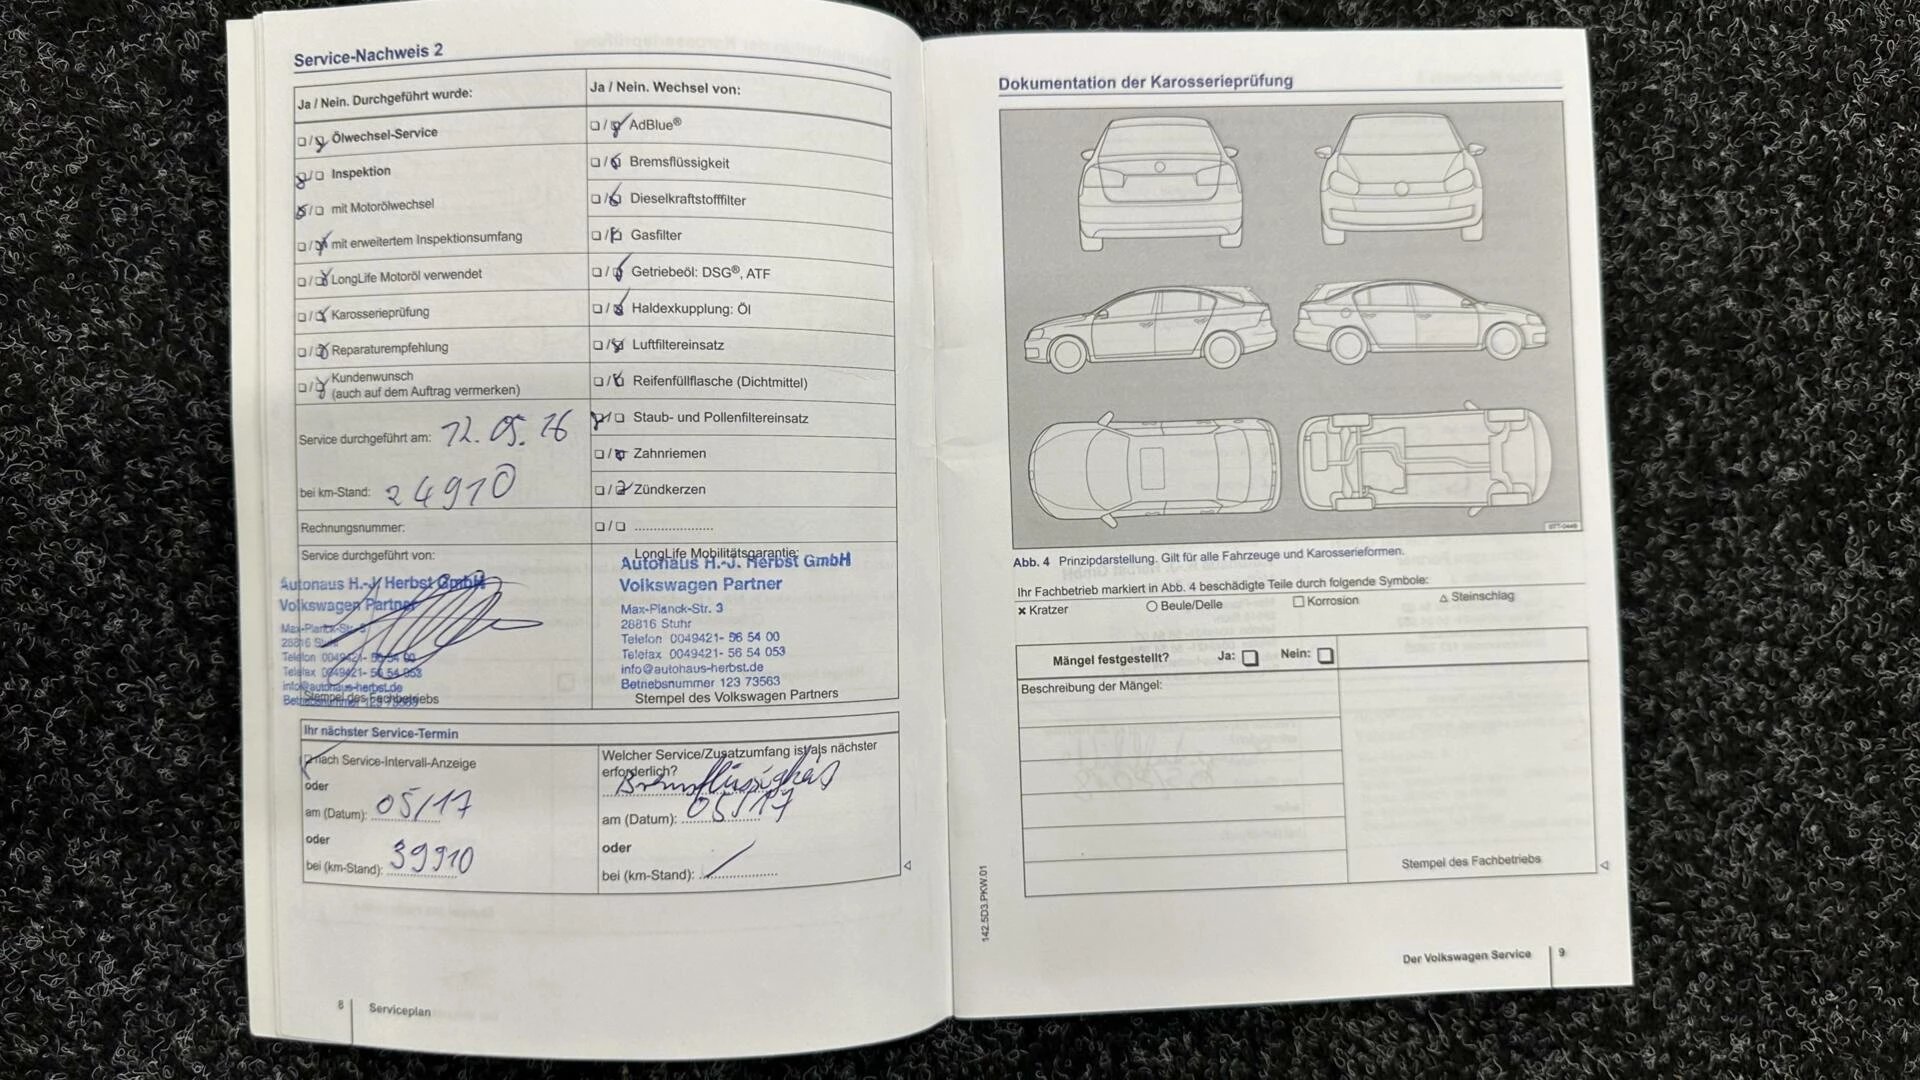 Service-Nachweis 2
Ja / Nein. Durchgeführt wurde:
Ölwechsel-Service
Inspektion
mit Motorölwechsel
mit erweitertem Inspektionsumfang
LongLife Motoröl verwendet
Karosserieprüfung
Reparaturempfehlung
Kundenwunsch
(auch auf dem Auftrag vermerken)
Service durchgeführt am: 12.05.16
bei km-Stand: 24910
Rechnungsnummer:
Service durchgeführt von:
Autohaus H.-J. Herbst GmbH
Volkswagen Partner
Max-Planck-Str. 3
28816 Stuhr
Telefon 0049421- 56 54 00
Telefax 0049421- 56 54 053
info@autohaus-herbst.de
Betriebsnummer 123 73563
Stempel des Fachbetriebs
Ja / Nein. Wechsel von:
AdBlue®
Bremsflüssigkeit
Dieselkraftstofffilter
Gasfilter
Getriebeöl: DSG®, ATF
Haldexkupplung: Öl
Luftfiltereinsatz
Reifenfüllflasche (Dichtmittel)
Staub- und Pollenfiltereinsatz
Zahnriemen
Zündkerzen
LongLife Mobilitätsgarantie:
Autohaus H.-J. Herbst GmbH
Volkswagen Partner
Max-Planck-Str. 3
28816 Stuhr
Telefon 0049421- 56 54 00
Telefax 0049421- 56 54 053
info@autohaus-herbst.de
Betriebsnummer 123 73563
Stempel des Volkswagen Partners
Ihr nächster Service-Termin
nach Service-Intervall-Anzeige
oder
am (Datum): 05/17
oder
bei (km-Stand): 39910
Welcher Service/Zusatzumfang ist als nächster
erforderlich?
Bremsflüssigkeit
am (Datum): 05/17
oder
bei (km-Stand): /
8 Serviceplan
Dokumentation der Karosserieprüfung
Abb. 4 Prinzipdarstellung. Gilt für alle Fahrzeuge und Karosserieformen.
Ihr Fachbetrieb markiert in Abb. 4 beschädigte Teile durch folgende Symbole:
Kratzer Beule/Delle Korrosion Steinschlag
Mängel festgestellt? Ja: Nein:
Beschreibung der Mängel:
Stempel des Fachbetriebs
142.5D3.PKW.01
Der Volkswagen Service 9